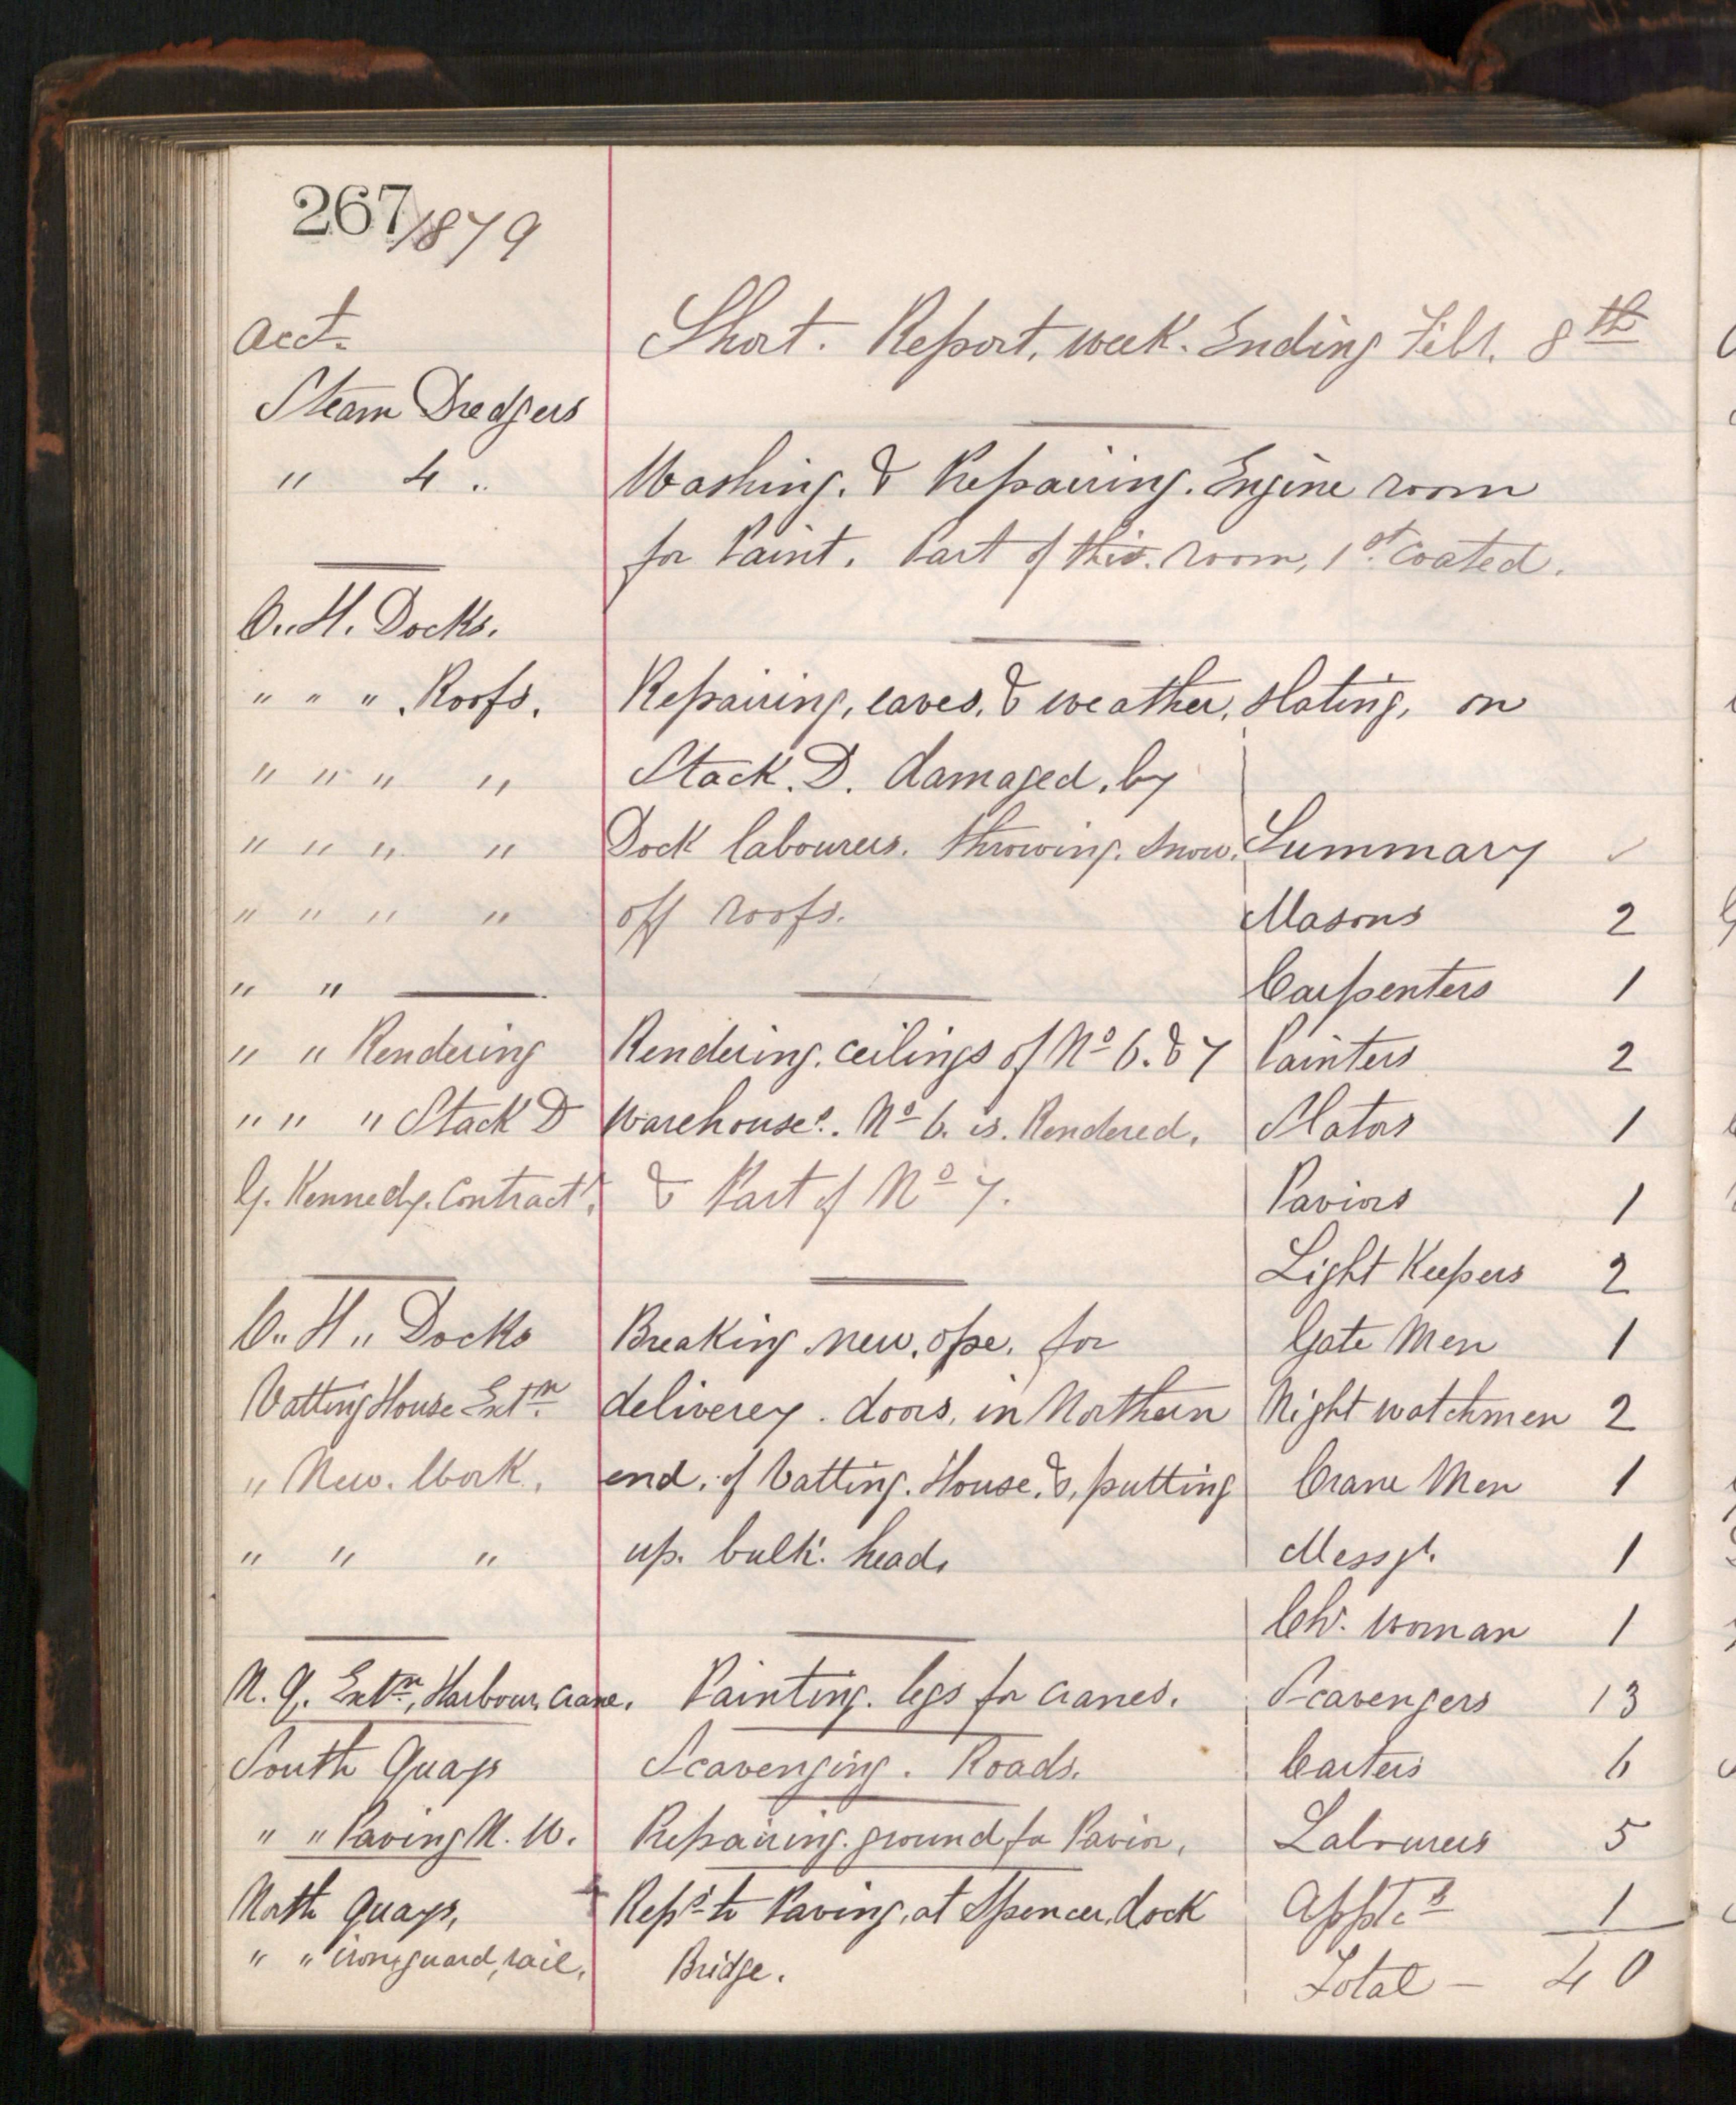 267
1879
Acct. Short. Report. week. Ending Febr. 8th
Steam Dredgers
" 4 " Washing. & Repairing. Engine room
for Paint. Part of this. room, 1st. coated.
C. H. Docks.
" " " Roofs. Repairing, eaves, & weather, slating, on
" " " " Stack. D. damaged, by
" " " " Dock labourers. throwing. snow. Summary ✓
" " " " off roofs. Masons 2
" " Carpenters 1
" " Rendering Rendering. ceilings of No 6. & 7 Painters 2
" " " Stack D Warehouses. No 6. is. Rendered, Slators 1
G. Kennedy. Contractr. & Part of No 7. Paviors 1
Light Keepers 2
C. H. Docks Breaking new. ope. for Gate Men 1
Vatting House Extn. deliverey. doors, in Northern Night watchmen 2
" New. Work, end. of Vatting. House. &, putting Crane Men 1
" " " up. bulk. head. Messgr. 1
Chr. woman 1
N. Q. Extn, Harbour, crane. Painting. legs for cranes. Scavengers 13
South Quays Scavenging. Roads. Carters 6
" " Paving N. W. Repairing. ground for Pavior. Labourers 5
North Quays, Reps to Paving, at Spencer, dock Appt.s 1
" " iron, guard, rail, Bridge. Total - 40